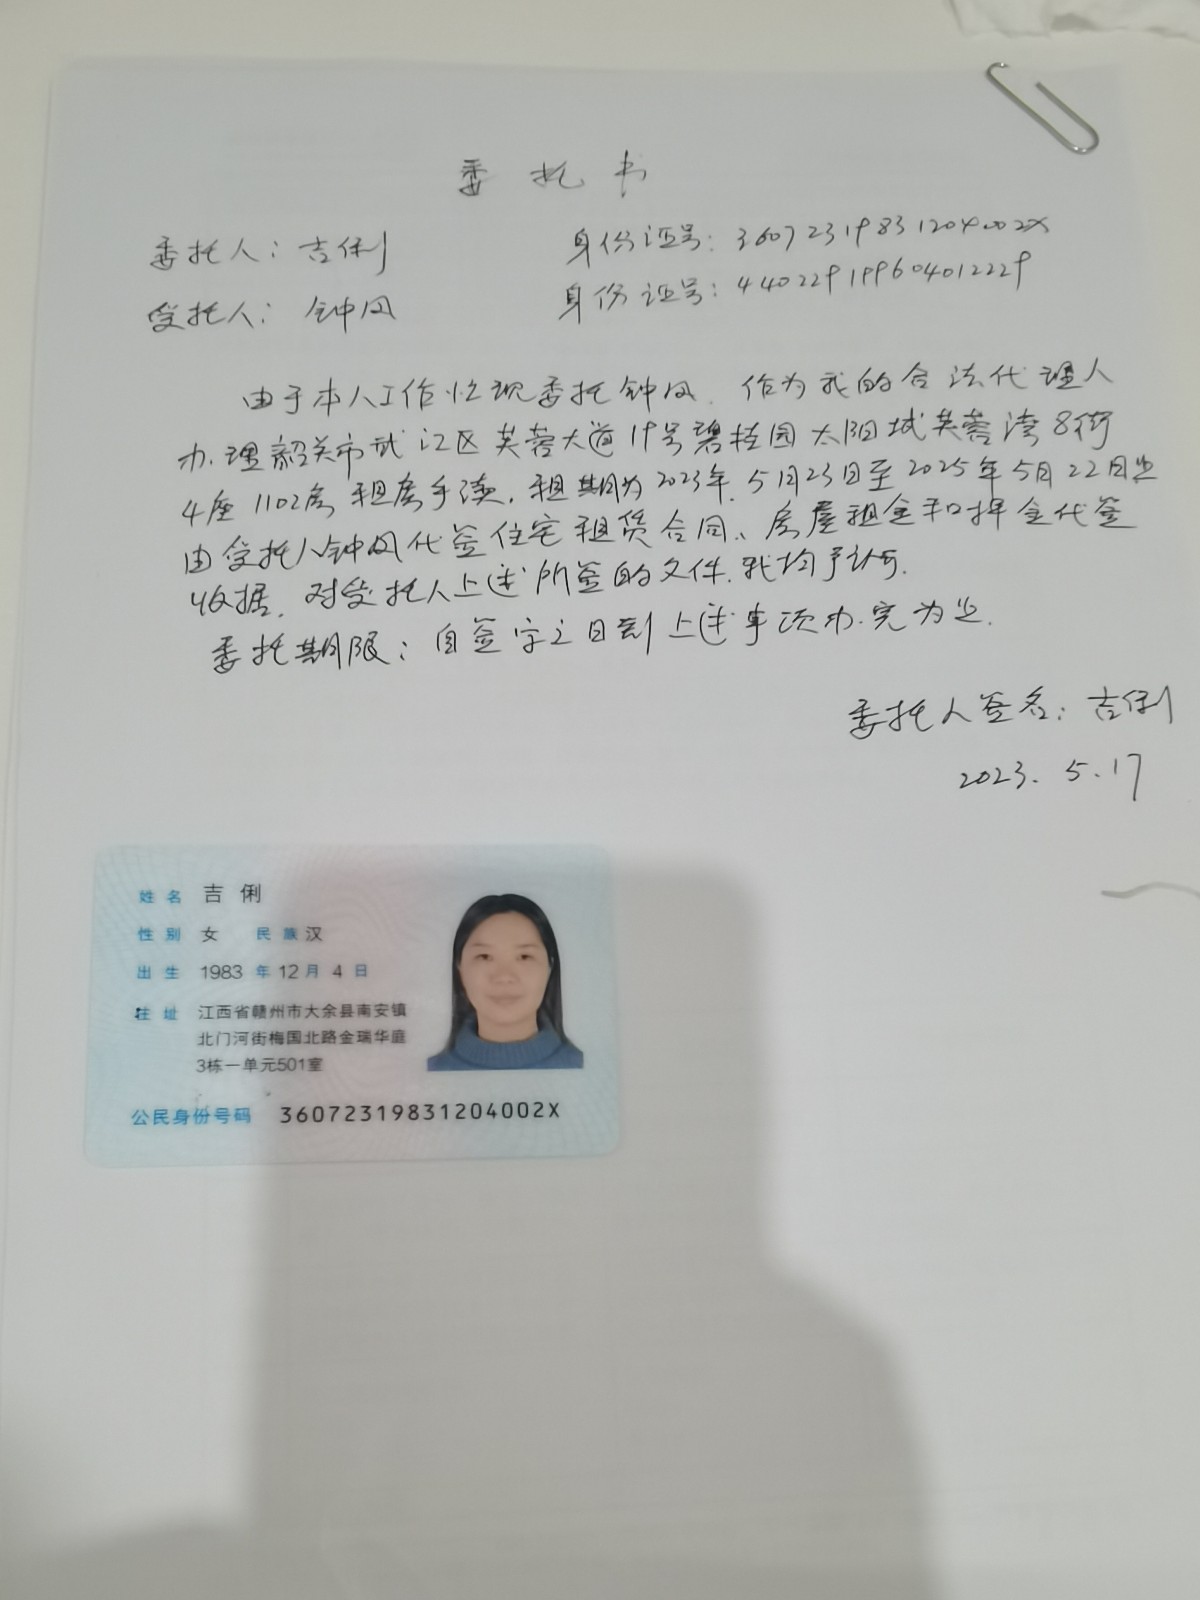 委托书
委托人：吉俐　身份证号：36072319831204002X
受托人：钟凤　身份证号：440229199604012229
由于本人工作忙现委托钟凤，作为我的合法代理人
办理韶关市武江区芙蓉大道19号碧桂园太阳城芙蓉湾8街
4座1102房租房手续，租期为2023年5月23日至2025年5月22日止
由受托人钟凤代签住宅租赁合同、房屋租金和押金代签
收据，对受托人上述所签的文件，我均予认可.
委托期限：自签字之日到上述事项办完为止.
委托人签名：吉俐
2023.5.17
姓名 吉俐
性别 女 民族 汉
出生 1983年12月4日
住址 江西省赣州市大余县南安镇
北门河街梅国北路金瑞华庭
3栋一单元501室
公民身份号码 36072319831204002X